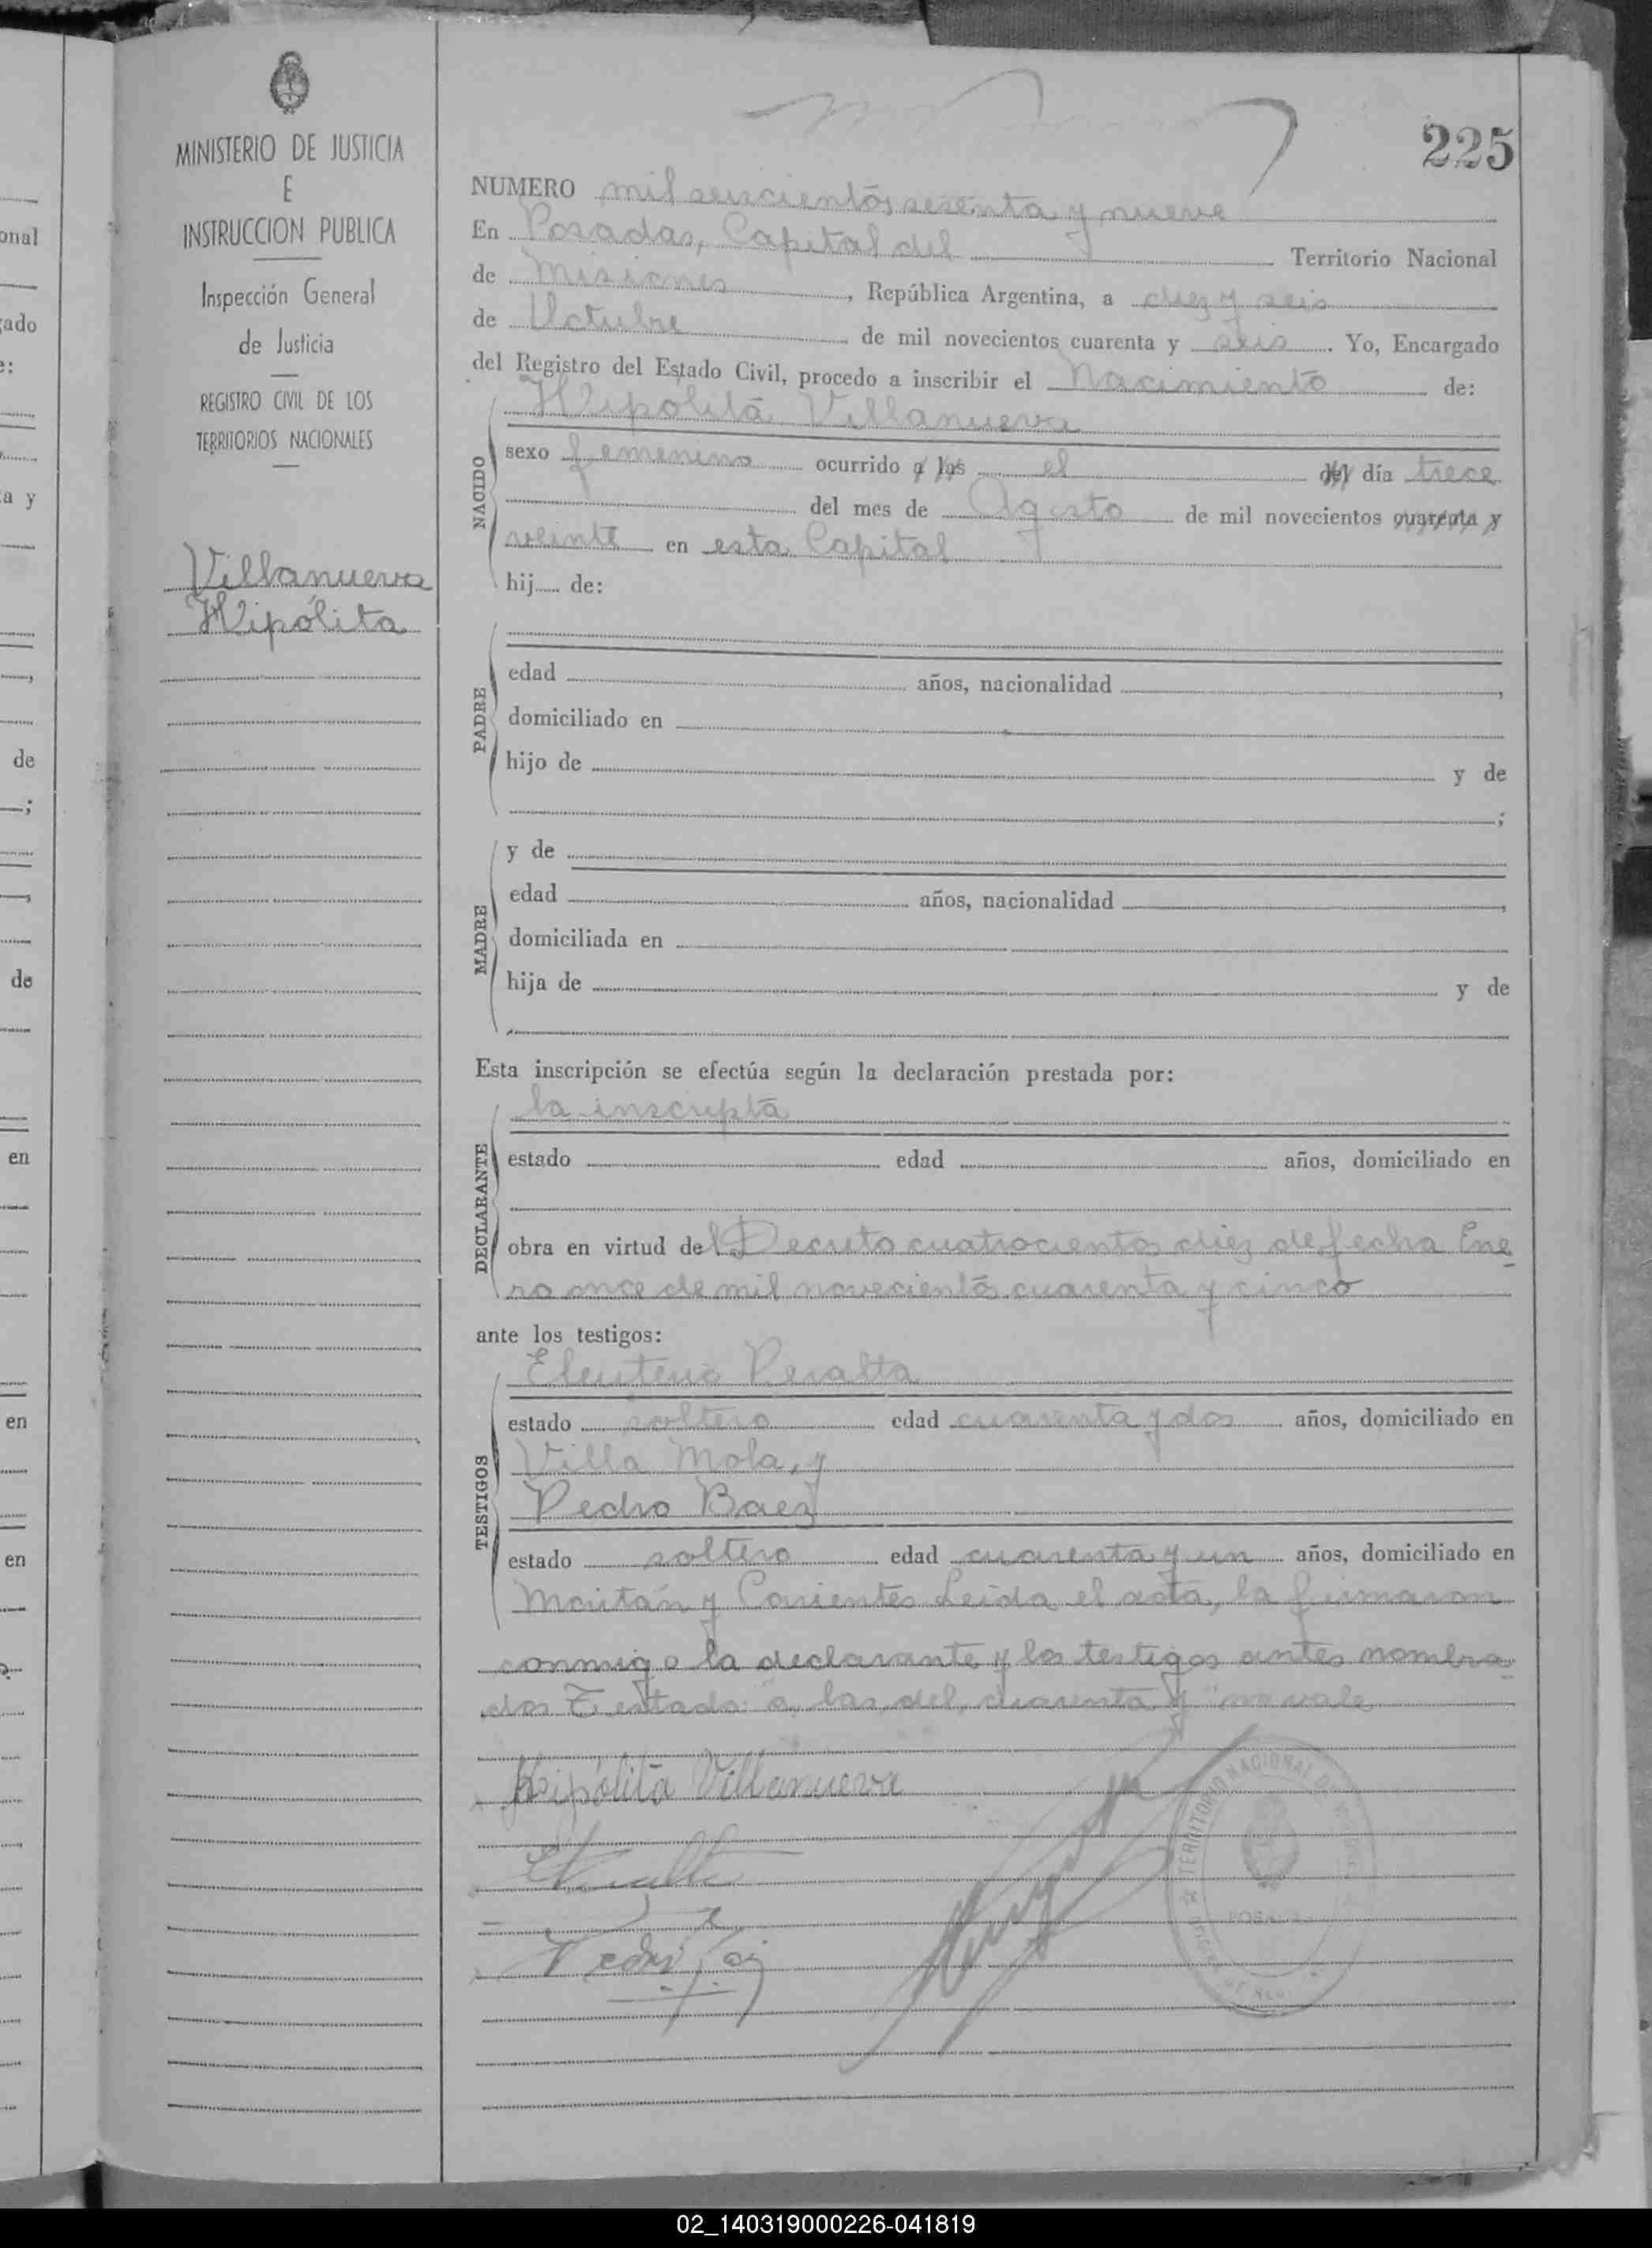 225
MINISTERIO DE JUSTICIA
E
INSTRUCCION PUBLICA
Inspección General
de Justicia
REGISTRO CIVIL DE LOS
TERRITORIOS NACIONALES
Villanueva
Hipólita
NUMERO mil seiscientos sesenta y nueve
En Posadas, Capital del Territorio Nacional
de Misiones, República Argentina, a diez y seis
de Octubre de mil novecientos cuarenta y seis. Yo, Encargado
del Registro del Estado Civil, procedo a inscribir el Nacimiento de:
NACIDO
Hipólita Villanueva
sexo femenino ocurrido a las el del día trece
del mes de Agosto de mil novecientos cuarenta y
veinte en esta Capital
hij de:
PADRE
edad años, nacionalidad ,
domiciliado en
hijo de y de
;
MADRE
y de
edad años, nacionalidad ,
domiciliada en
hija de y de
Esta inscripción se efectúa según la declaración prestada por:
DECLARANTE
la inscripta
estado edad años, domiciliado en
obra en virtud del Decreto cuatrocientos diez de fecha Ene
ro once de mil novecientos cuarenta y cinco
ante los testigos:
TESTIGOS
Eleuterio Peralta
estado soltero edad cuarenta y dos años, domiciliado en
Villa Mola, y
Pedro Baez
estado soltero edad cuarenta y un años, domiciliado en
y Corrientes Leida el acta, la firmaron
conmigo la declarante y los testigos antes nombra
dos Testado: "a las, del, cuarenta y" no vale
Hipólita Villanueva
TERRITORIO NACIONAL
02_140319000226-041819